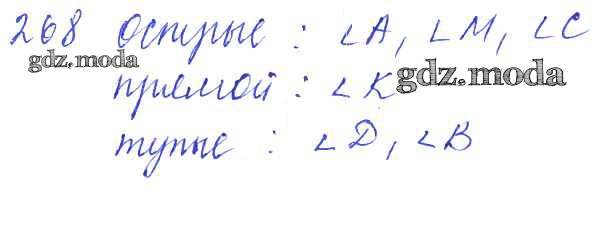 268 острые : ∠A, ∠M, ∠C
gdz.moda
прямой : ∠K
gdz.moda
тупые : ∠D, ∠B